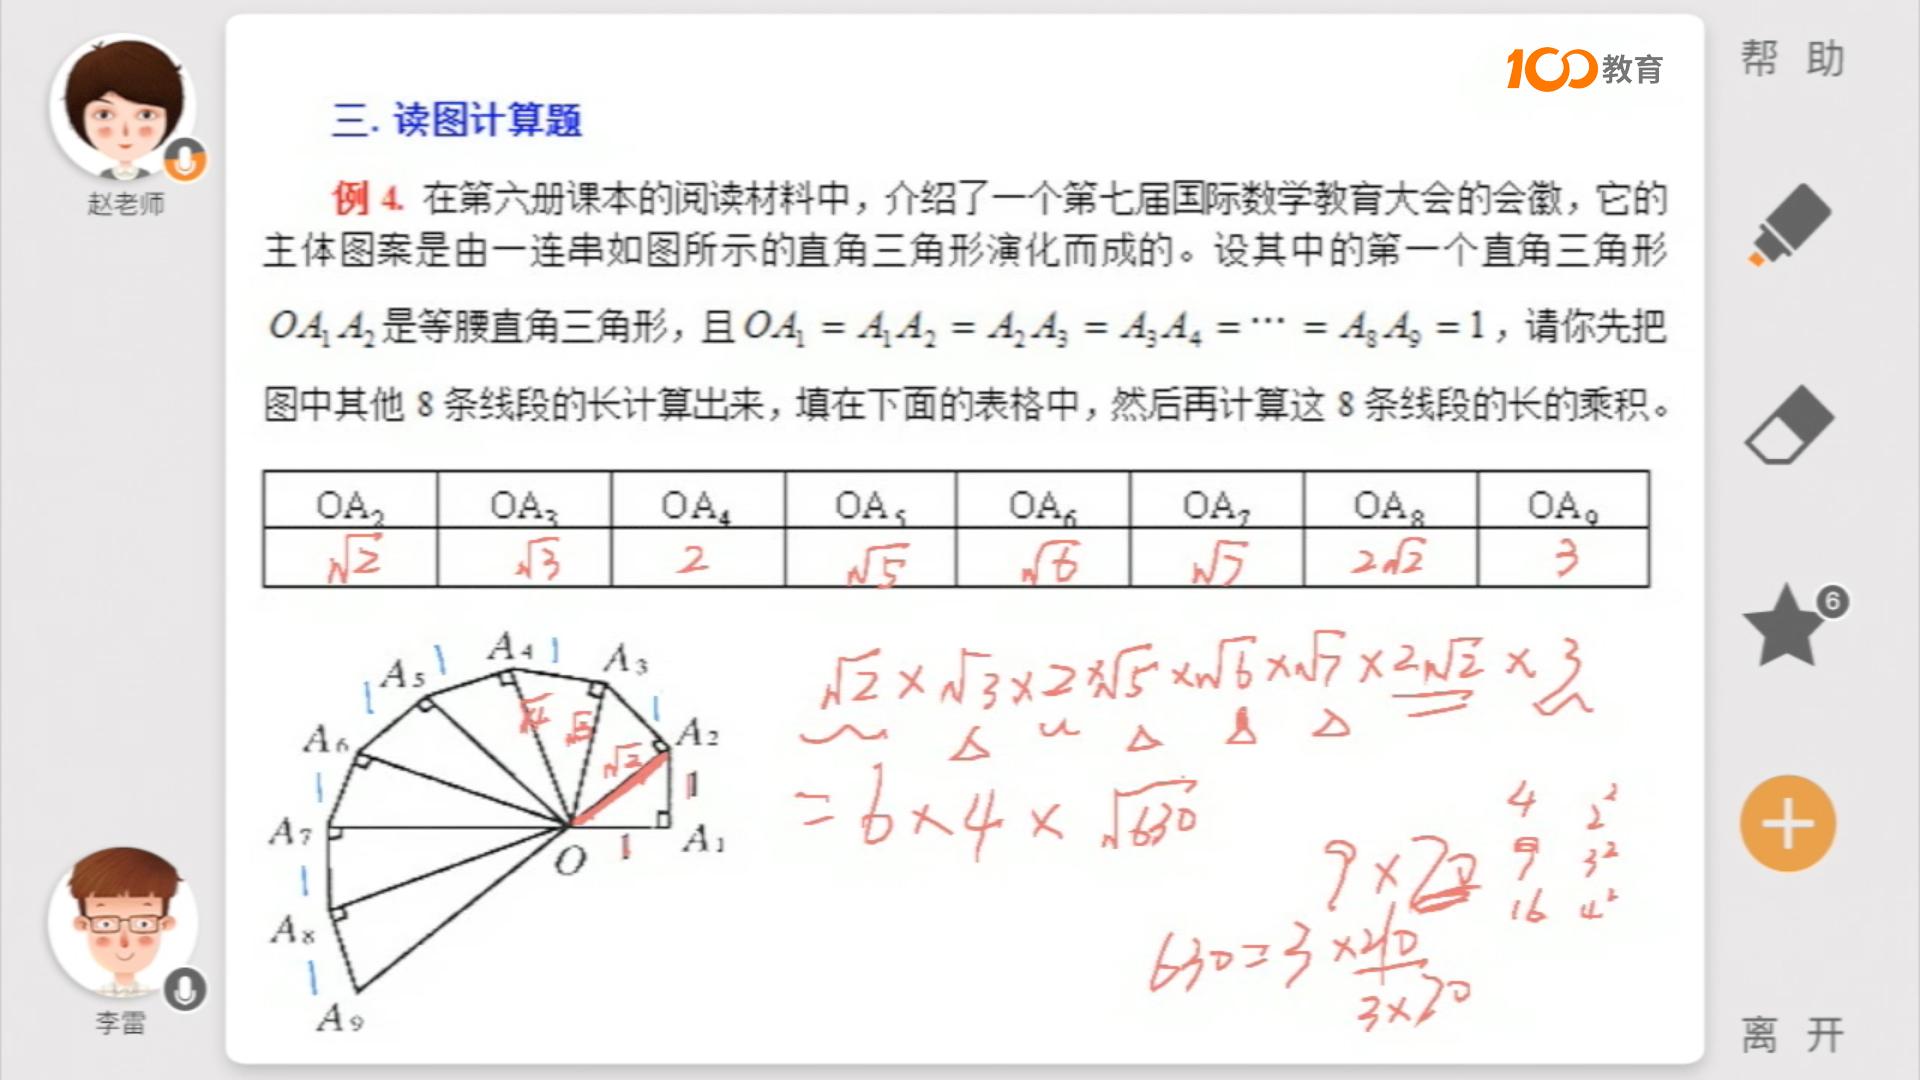 100教育
帮 助
赵老师
三. 读图计算题
例 4. 在第六册课本的阅读材料中，介绍了一个第七届国际数学教育大会的会徽，它的
主体图案是由一连串如图所示的直角三角形演化而成的。设其中的第一个直角三角形
OA₁A₂是等腰直角三角形，且OA₁ = A₁A₂ = A₂A₃ = A₃A₄ = … = A₈A₉ = 1，请你先把
图中其他 8 条线段的长计算出来，填在下面的表格中，然后再计算这 8 条线段的长的乘积。
OA₂ OA₃ OA₄ OA₅ OA₆ OA₇ OA₈ OA₉
√2 √3 2 √5 √6 √7 2√2 3
6
A₄ 1 A₃
A₅ 1
1
1
√4 √3
A₆ A₂
√2
1 1
A₇ O 1 A₁
1
A₈
1
A₉
√2 × √3 × 2 × √5 × √6 × √7 × 2√2 × 3
= 6 × 4 × √630
4 2²
9 3²
16 4²
9 × 70
630 = 3 × 210
3 × 70
李雷
离 开